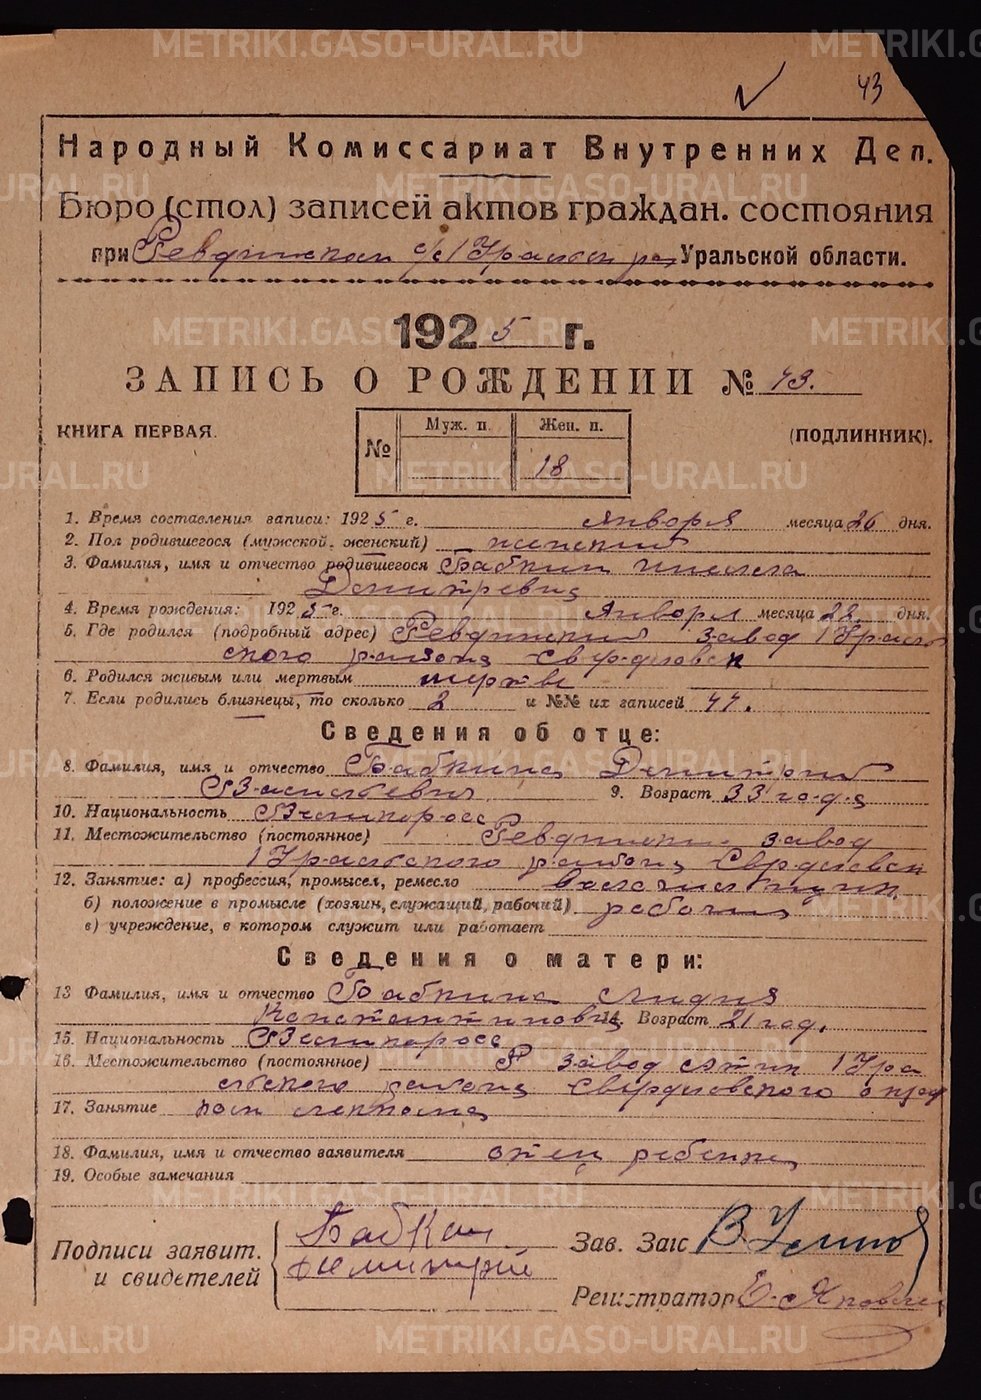 43
Народный Комиссариат Внутренних Дел.
Бюро (стол) записей актов граждан. состояния
при Ревдинском с/с Уральской области.
1925 г.
ЗАПИСЬ О РОЖДЕНИИ № 43.
КНИГА ПЕРВАЯ.
(ПОДЛИННИК).
№ Муж. п. Жен. п.
18
1. Время составления записи: 1925 г. Января месяца 26 дня.
2. Пол родившегося (мужской, женский) женский
3. Фамилия, имя и отчество родившегося Бабкин
Дмитревна
4. Время рождения: 1925 г. Января месяца 22 дня.
5. Где родился (подробный адрес) Ревдинский завод 1 Ураль
ского района Свердловск
6. Родился живым или мертвым мертве
7. Если родились близнецы, то сколько 2 и №№ их записей 44.
Сведения об отце:
8. Фамилия, имя и отчество Бабкина Дмитрий
Васильевич 9. Возраст 33 года
10. Национальность Великоросс
11. Местожительство (постоянное) Ревдински завод
1 Уральского района Свердловск
12. Занятие: а) профессия, промысел, ремесло
б) положение в промысле (хозяин, служащий, рабочий) рабочий
в) учреждение, в котором служит или работает
Сведения о матери:
13 Фамилия, имя и отчество Бабкина Лидия
Константиновна 14. Возраст 21 год.
15. Национальность Великоросс
16. Местожительство (постоянное) Р завод 1 Ура
льского района Свердловского округ
17. Занятие
18. Фамилия, имя и отчество заявителя отец ребенка
19. Особые замечания
Подписи заявит. и свидетелей
Бабкин
Димитрий
Зав. Загс
Регистратор
METRIKI.GASO-URAL.RU